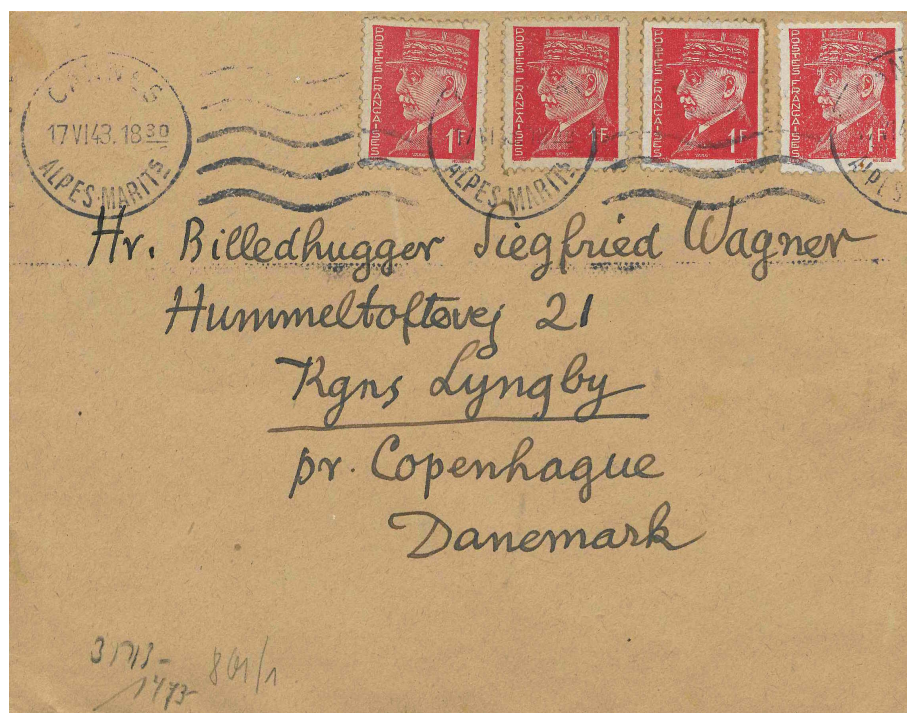 CANNES
17 VI 43. 18 30
ALPES-MARITMES
POSTES FRANÇAISES
1F
POSTES FRANÇAISES
1F
POSTES FRANÇAISES
1F
POSTES FRANÇAISES
1F
ALPES-MARIT
Hr. Billedhugger Siegfried Wagner
Hummeltoftevej 21
Kgns Lyngby
pr. Copenhague
Danemark
801/1